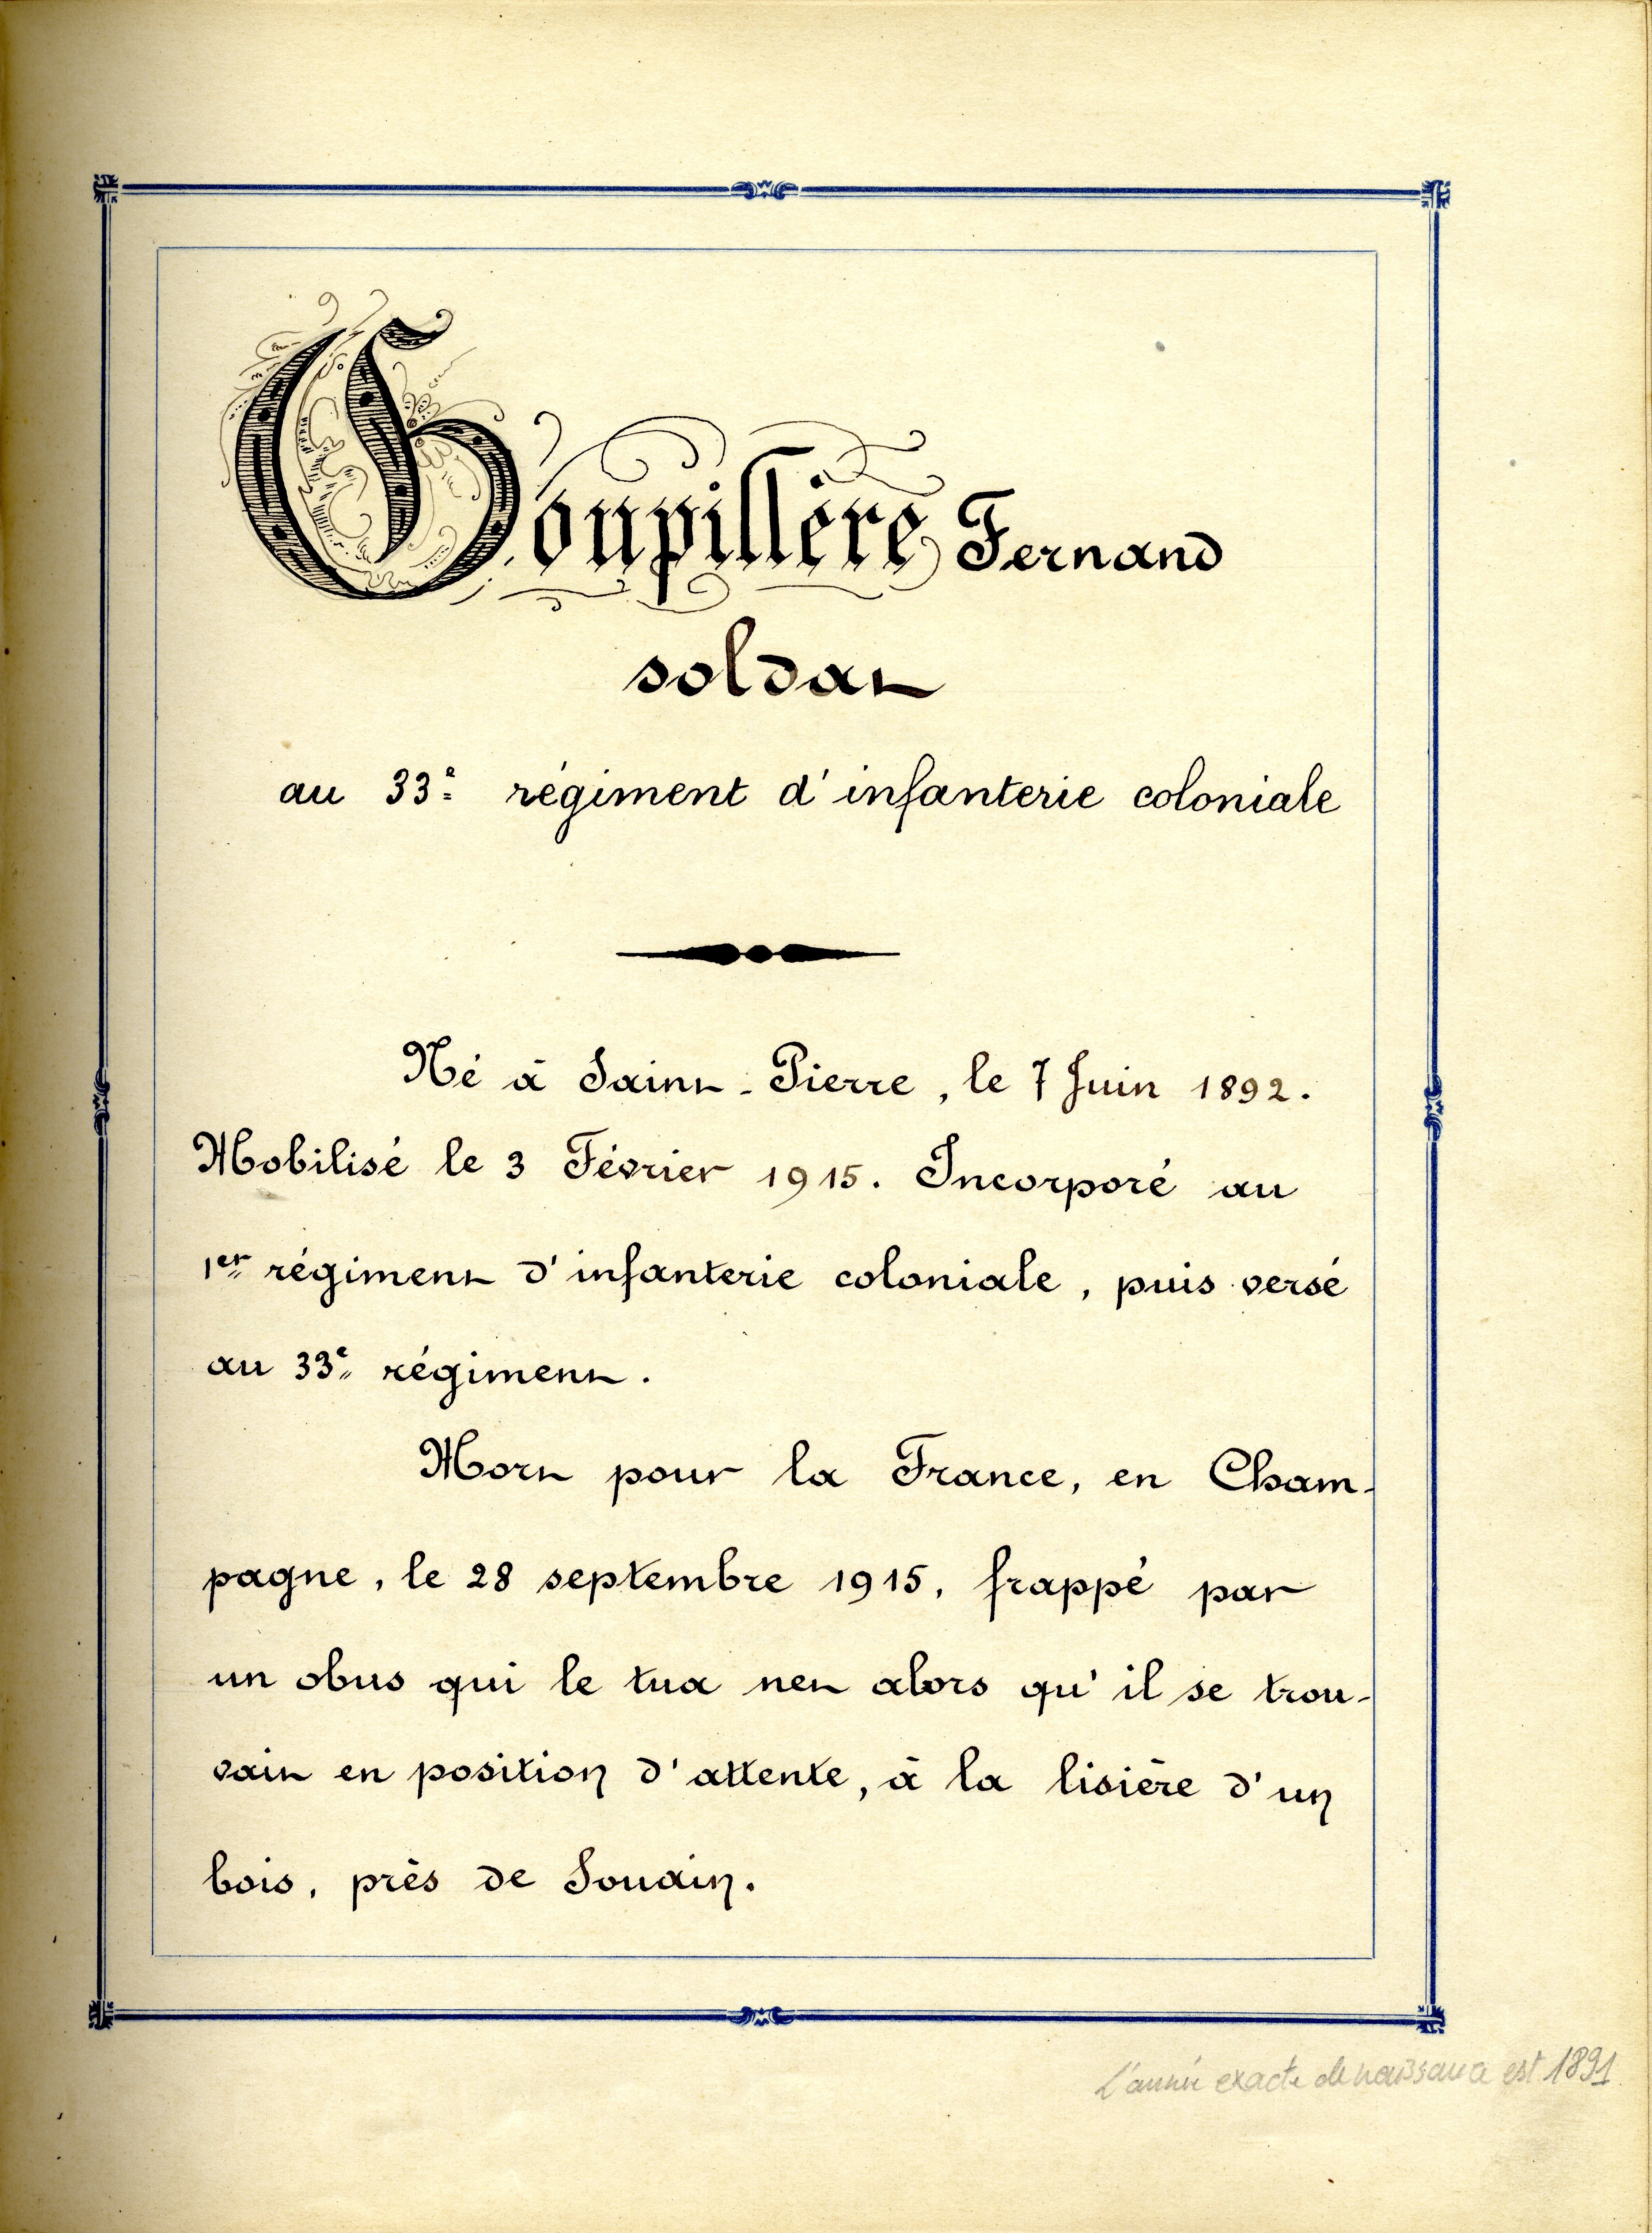 Goupillère Fernand
soldat
au 33e régiment d'infanterie coloniale
Né à Saint-Pierre, le 7 Juin 1892.
Mobilisé le 3 Février 1915. Incorporé au
1er régiment d'infanterie coloniale, puis versé
au 33e régiment.
Mort pour la France, en Cham-
pagne, le 28 septembre 1915, frappé par
un obus qui le tua net alors qu'il se trou-
vait en position d'attente, à la lisière d'un
bois, près de Souain.
L'année exacte de naissance est 1891